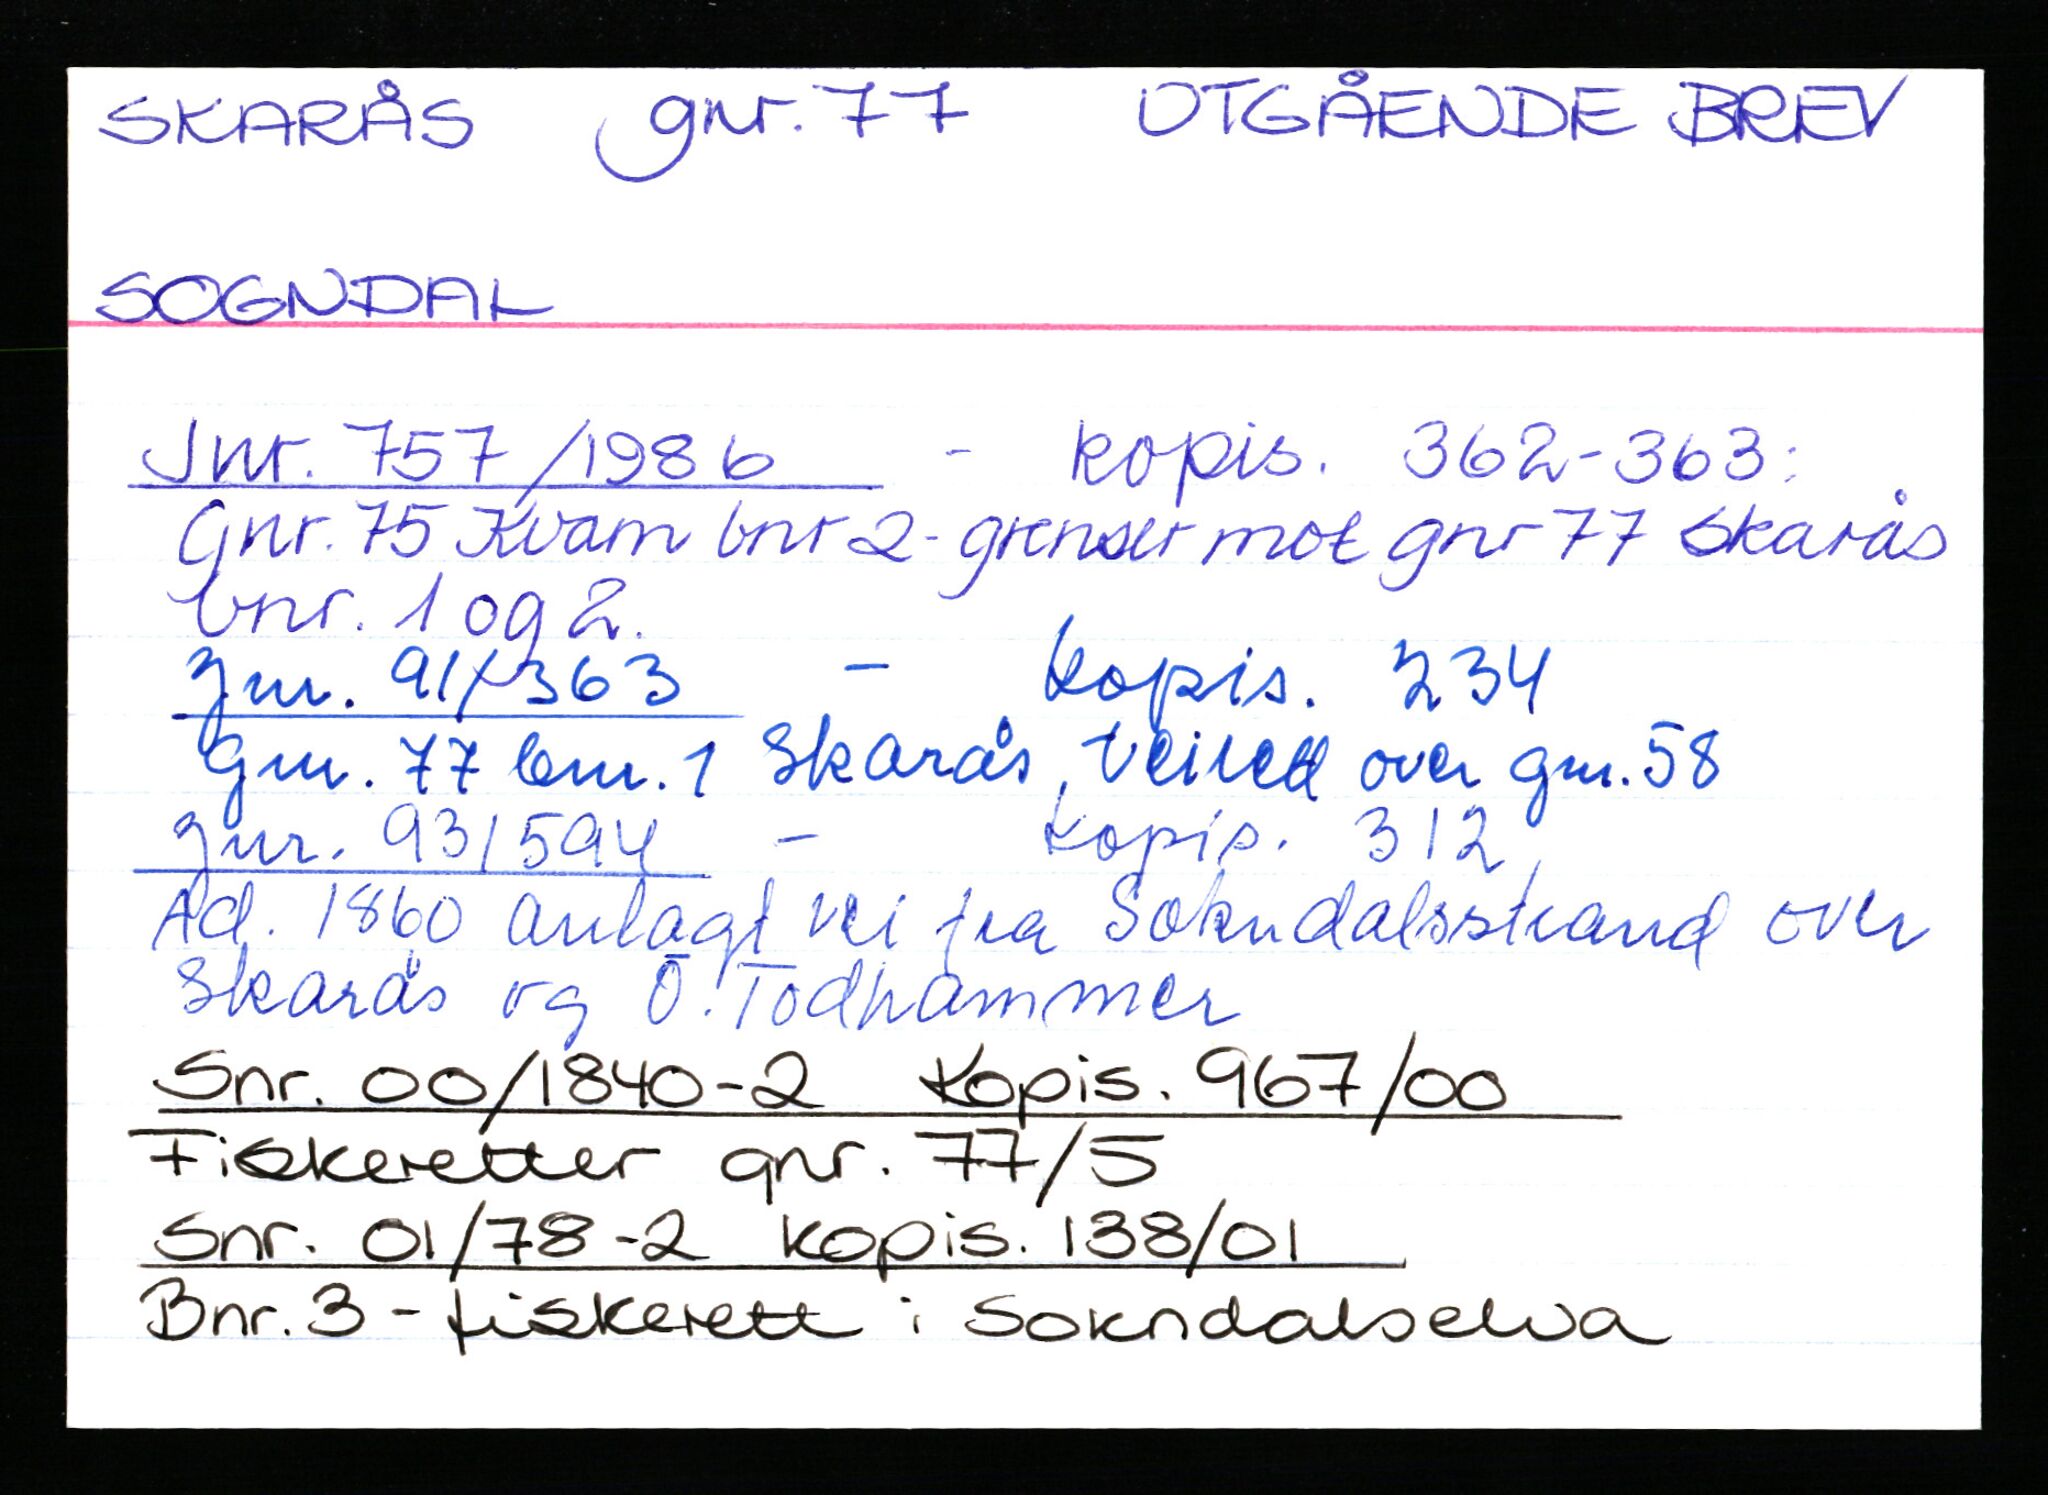 SKARÅS gnr. 77 UTGÅENDE BREV
SOGNDAL
Jnr. 757/1986 - kopis. 362-363:
Gnr. 75 Kvam bnr 2 - grenser mot gnr 77 Skarås
bnr. 1 og 2.
Jnr. 91/363 - kopis. 234
Gnr. 77 bnr. 1 Skarås, veirett over gnr. 58
Jnr. 93/594 - kopis. 312
Ad. 1860 anlagt vei fra Sokndalsstrand over
Skarås og Ö. Todhammer
Snr. 00/1840-2 Kopis. 967/00
Fiskeretter gnr. 77/5
Snr. 01/78-2 kopis. 138/01
Bnr. 3 - fiskerett i Sokndalselva